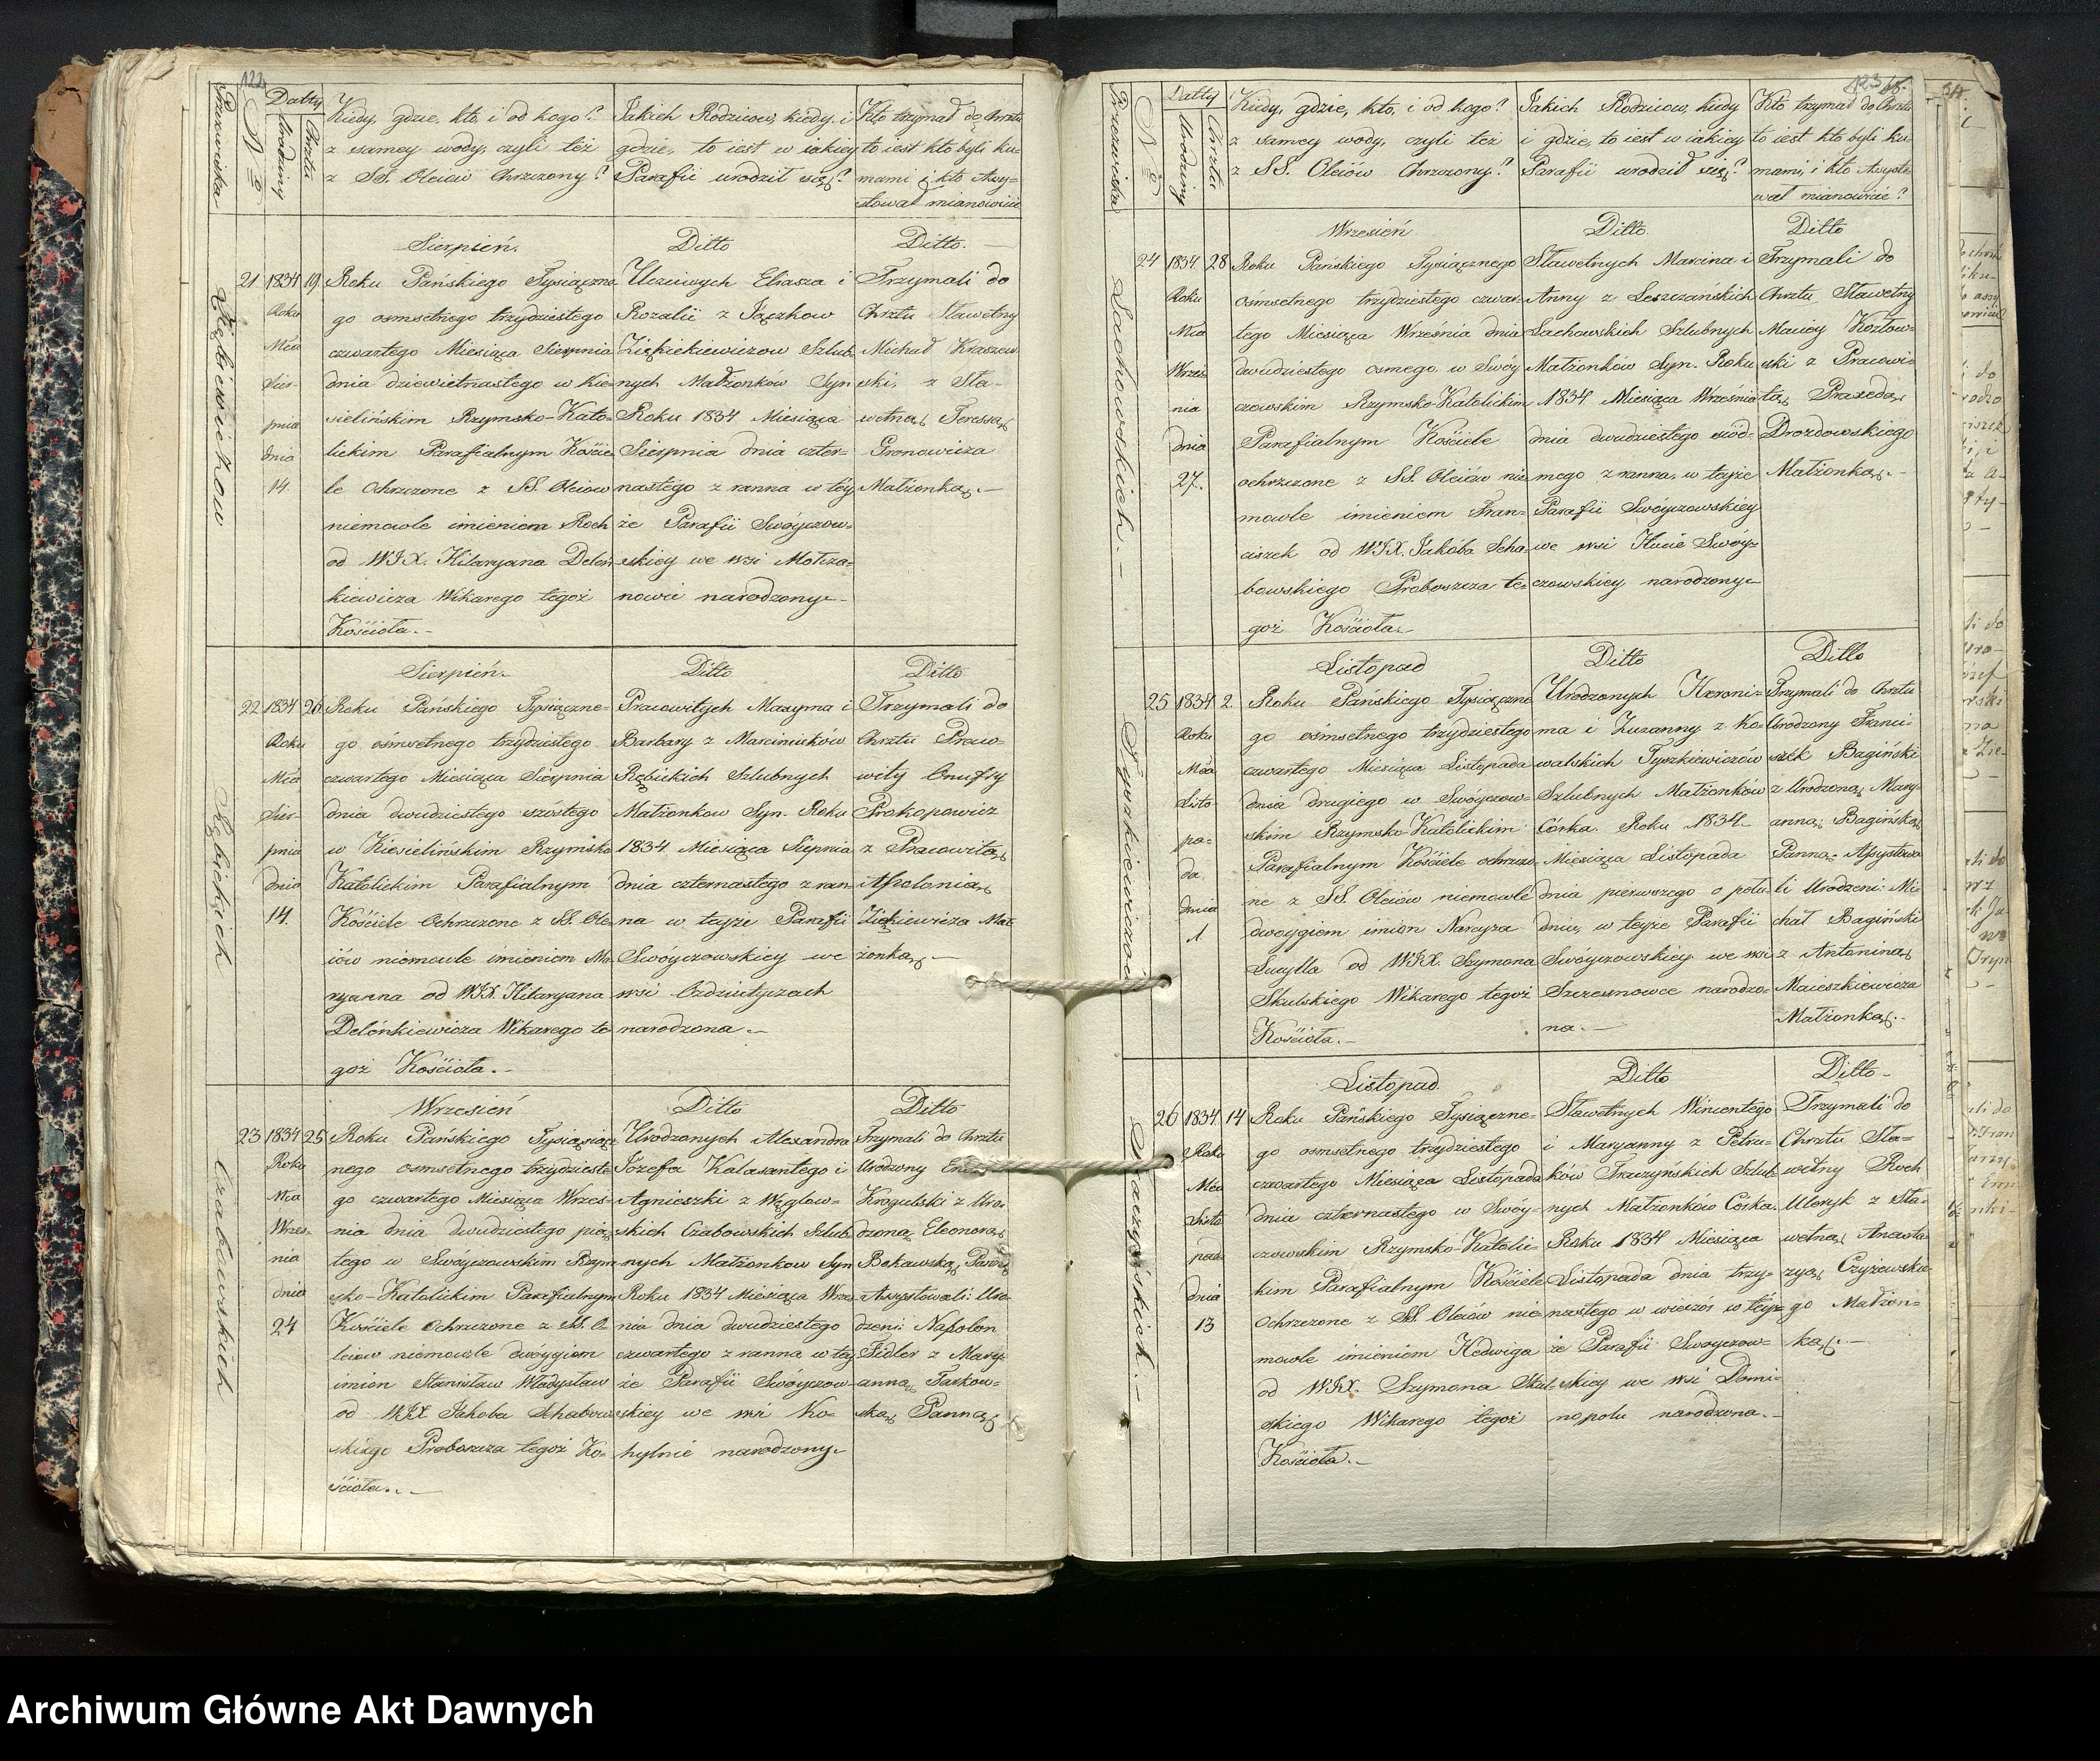 122
Przezwiska
Nro
Datty
Urodziny
Chrztu
Kiedy, gdzie, kto, i od kogo?
z samey wody, czyli też
z SS. Oleiow Chrzczony?
Jakich Rodzicow, kiedy, i
gdzie, to iest w iakiey
Parafii urodził się?
Kto trzymał do Chrztu
to iest kto byli ku-
mami i kto Assy-
stował mianowicie
Sierpień.
Ditto
Ditto.
21
1834
19
Roku
Mca
Sier-
pnia
dnia
14.
Roku Pańskiego Tysiączne-
go osmsetnego trzydziestego
czwartego Miesiąca Sierpnia
dnia dziewietnastego w Kie-
sielińskim Rzymsko-Kato-
lickim Parafialnym Koście-
le Ochrzczone z SS. Oleiow
niemowle imieniem Roch
od WJX. Hilaryana Delen-
kiewicza Wikarego tegoż
Kościoła.
Uczciwych Eliasza i
Rozalii z Jączkow
Ziękiekiewiczow Szlub-
nych Małżonków Syn
Roku 1834 Miesiąca
Sierpnia dnia czter-
nastego z ranna w téy
że Parafii Swóyczow-
skiey we wsi Mohza-
nowie narodzony
Trzymali do
Chrztu Sławetny
Michał Kraszew-
ski, z Sła-
wetną Teressą
Gronowicza
Małżonką.
Sierpień.
Ditto
Ditto
22
1834
26
Rębickich
Roku
Mca
Sier-
pnia
dnia
14.
Roku Pańskiego Tysiączne-
go ośmsetnego trzydziestego
czwartego Miesiąca Sierpnia
dnia dwudziestego szóstego
w Kisielińskim Rzymsko
Katolickim Parafialnym
Kościele Ochrzczone z SS. Ole-
iów niemowle imieniem Ma-
ryanna od WJX. Hilaryana
Delénkiewicza Wikarego te-
goż Kościoła.
Pracowitych Maxyma i
Barbary z Marciniuków
Rębickich Szlubnych
Małżonkow Syn. Roku
1834. Miesiąca Siepnia
dnia czternastego z ran-
na w teyże Parafii
Swóyczowskiey we
wsi Ozdziutyczach
narodzona.
Trzymali do
Chrztu Praco-
wity Onufry
Prokopowicz
z Pracowitą
Apolonią
Ziękiewicza Mał-
żonką.
Wrzesień
Ditto
Ditto
23
1834
25
Czabowskich
Roku
Mca
Wrześ-
nia
dnia
24
Roku Pańskiego Tysiąsiącz
nego osmsetnego trzydzieste-
go czwartego Miesiąca Wrześ-
nia dnia dwudziestego pią-
tego w Swóyczowskim Rzym-
sko-Katolickim Parafialnym
Kościele Ochrzczone z SS. O-
leiow niemowle dwóygiem
imion Stanisław Władysław
od WJX Jakóba Schabow-
skiego Proboszcza tegoż Ko-
ścioła.
Urodzonych Alexandra
Jozefa Kalasantego i
Agnieszki z Węglow-
skich Czabowskich Szlub-
nych Małżonkow Syn
Roku 1834 Miesiąca Wrze-
nia dnia dwudziestego
czwartego z ranna w tey
że Parafii Swóyczow-
skiey we wsi Ko-
hylnie narodzony
Trzymali do Chrztu
Urodzony
Krogulski z Uro-
dzoną Eleonorą
Bokawską Panną
Assystowali: Uro-
dzeni: Napolon
Fidler z Mary-
anną Jaskow-
ską Panną
123
Przezwiska
Nro
Datty
Urodziny
Chrztu
Kiedy, gdzie, kto, i od kogo?
z samey wody, czyli też
z SS. Oleiow Chrzczony?
Jakich Rodzicow, kiedy
i gdzie, to iest w iakiey
Parafii urodził się?
Kto trzymał do Chrztu
to iest kto byli ku-
mami, i kto Assysto-
wał mianowicie?
Wrzesień
Ditto
Ditto
24
1834.
28
Lachowskich.
Roku
Mca
Wrześ-
nia
dnia
27.
Roku Pańskiego Tysiącznego
ośmsetnego trzydziestego czwar-
tego Miesiąca Września dnia
dwudziestego osmego w Swóy
czowskim Rzymsko-Katolickim
Parafialnym Kościele
ochrzczone z SS. Oleiów nie-
mowle imieniem Fran-
ciszek od WJX. Jakóba Scha-
bowskiego Proboszcza te-
goż Kościoła.
Sławetnych Marcina i
Anny z Leszczańskich
Lachowskich Szlubnych
Małżonków Syn. Roku
1834. Miesiąca Września
dnia dwudziestego siód-
mego z ranna, w teyże
Parafii Swóyczowskiéy
we wsi Hucie Swóy-
czowskiey narodzony
Trzymali do
Chrztu Sławetny
Maciey Kozłow-
ski z Pracowi-
tą Praxedą
Drozdowskiego
Małżonką.
Listopad
Ditto
Ditto
25
1834
2.
Tyszkiewiczow
Roku
Mca
Listo-
pa-
da
dnia
1.
Roku Pańskiego Tysiączne
go ośmsetnego trzydziestego
czwartego Miesiąca Listopada
dnia drugiego w Swóyczow-
skim Rzymsko-Katolickim
Parafialnym Kościele ochrzczo-
ne z SS. Oleiów niemowlé
dwoygiem imion Narcyza
Lucylla od WJX. Szymona
Skulskiego Wikarego tegoż
Kościoła.
Urodzonych Hieroni-
ma i Zuzanny z Ko-
walskich Tyszkiewiczów
Szlubnych Małżonków
Córka. Roku 1834
Miesiąca Listopada
dnia pierwszego o połu-
dniu, w teyże Parafii
Swóyczowskiey we wsi
Szczesnowce narodzo-
na.
Trzymali do Chrztu
Urodzony Franci-
szek Bagiński
z Urodzoną Mary-
anną Bagińską
Panną Assystowa-
li Urodzeni: Mi-
chał Bagiński
z Antoniną
Maieszkiewicza
Małżonką.
Listopad
Ditto
Ditto
26
1834
14
Traczyńskich.
Roku
Mca
Listo
pada
dnia
13
Roku Pańskiego Tysiączne-
go osmsetnego trzydziestego
czwartego Miesiąca Listopada
dnia czternastego w Swóy-
czowskim Rzymsko-Katolic-
kim Parafialnym Kościele
Ochrzczone z SS. Oleiów nie-
mowle imieniem Hedwiga
od WJX. Szymona Skul-
skiego Wikarego tegoż
Kościoła.
Sławetnych Wincentego
i Maryanny z Petru-
ków Traczyńskich Szlub-
nych Małżonków Corka.
Roku 1834 Miesiąca
Listopada dnia trzy-
nastego w wieczór w téy-
że Parafii Swoyczow-
skiey we wsi Domi-
nopolu narodzona.
Trzymali do
Chrztu Sła-
wetny Roch
Uloryk z Sła-
wetną Anasta-
zyą Czyżewskie-
go Małżon-
ką.
Archiwum Główne Akt Dawnych